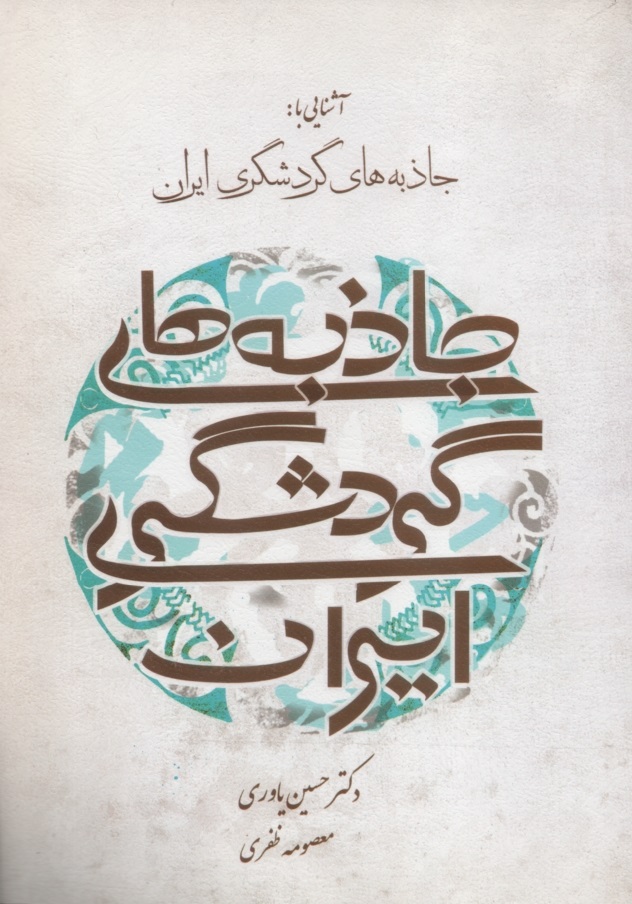 آشنایی با:
جاذبه های گردشگری ایران
جاذبه‌های
گردشگری
ایران
دکتر حسین یاوری
معصومه ظفری